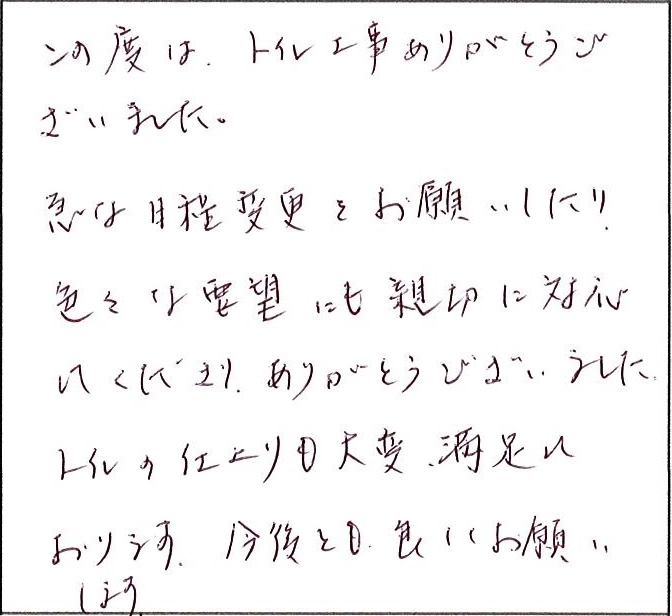 この度は、トイレ工事ありがとうご
ざいました。
急な日程変更をお願いしたり、
色々な要望にも親切に対応
してくださり、ありがとうございました。
トイレの仕上りも大変、満足して
おります。今後とも、良しくお願い
します。